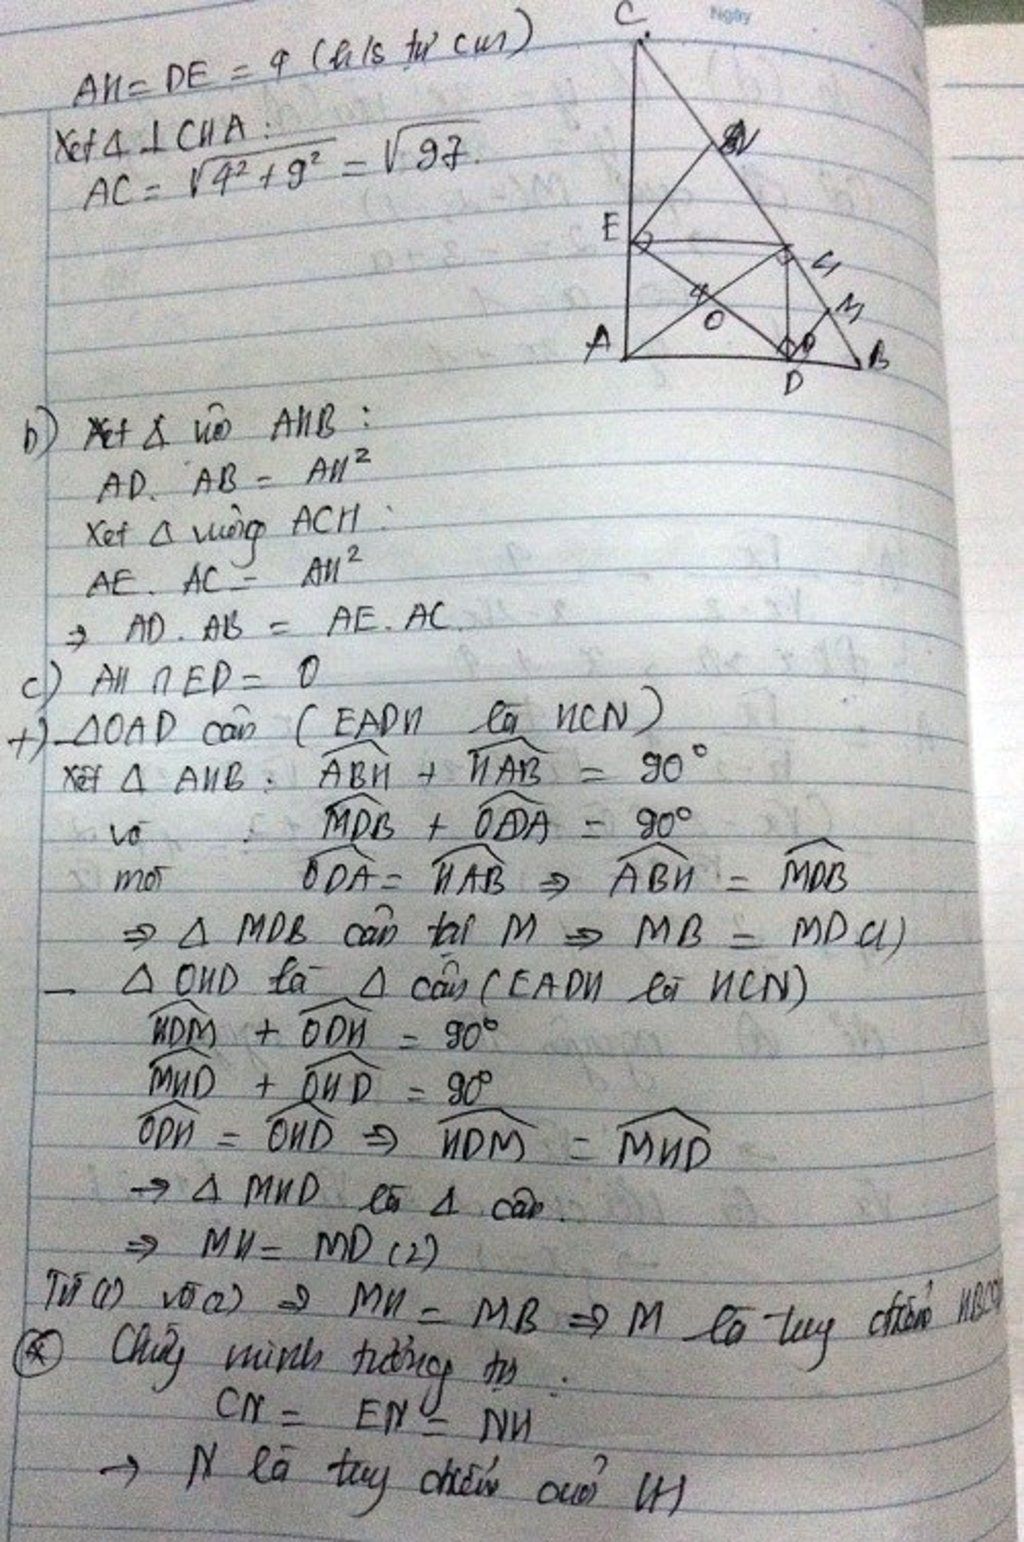 Ngày
AH = DE = 4 (h/s tự cm)
Xét Δ ⊥ CHA :
AC = √4² + 9² = √97.
C
N
E
H
M
4
O
A
D
B
b) Xét Δ vô AHB :
AD. AB = AH²
Xét Δ vuông ACH :
AE. AC = AH²
⇒ AD. AB = AE. AC
c) AH ∩ ED = O
+) - ΔOAD cân (EADH là HCN)
Xét Δ AHB : ABH + HAB = 90°
và MDB + ODA = 90°
mà ODA = HAB ⇒ ABH = MDB
⇒ Δ MDB cân tại M ⇒ MB = MD (1)
- Δ OHD là Δ cân (EADH là HCN)
HDM + ODH = 90°
MHD + OHD = 90°
ODH = OHD ⇒ HDM = MHD
→ Δ MHD là Δ cân.
⇒ MH = MD (2)
Từ (1) và (2) ⇒ MH = MB ⇒ M là tuy điểm
Chứng minh tương tự :
CN = EN = NH
→ N là tuy điểm của